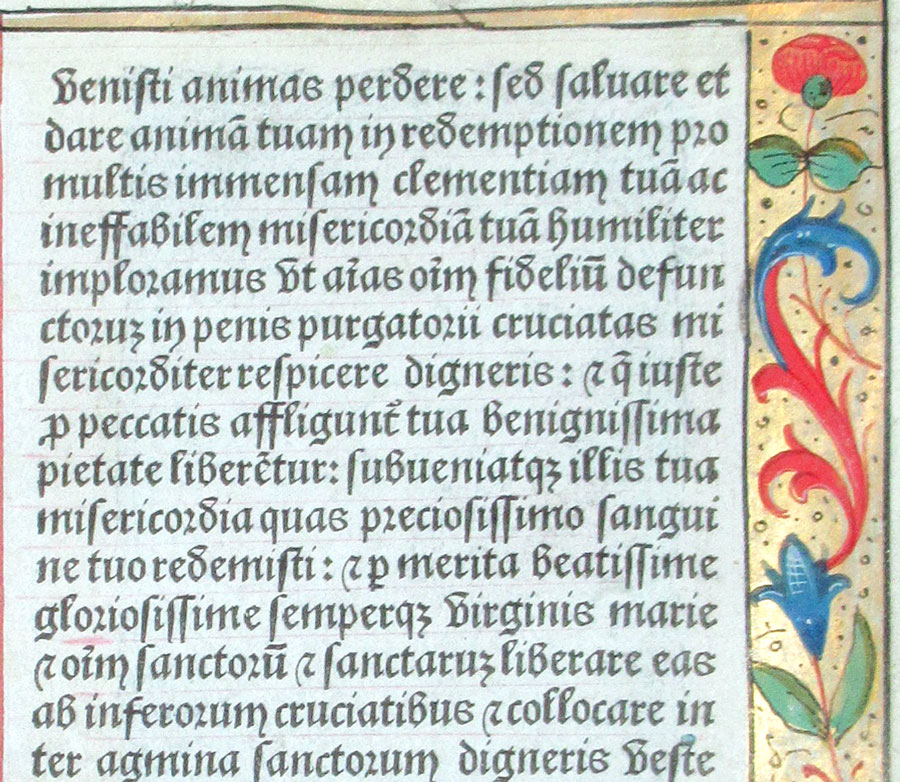 Venisti animas perdere : sed saluare et
dare animā tuam in redemptionem pro
multis immensam clementiam tuā ac
ineffabilem misericordiā tuā humiliter
imploramus vt aīas oīm fideliū defun
ctoruꝫ in penis purgatorii cruciatas mi
sericorditer respicere digneris : ⁊ q̄ iuste
ꝓ peccatis affligunt᷑ tua benignissima
pietate liberētur: subueniatqꝫ illis tua
misericordia quas preciosissimo sangui
ne tuo redemisti : ⁊ ꝑ merita beatissime
gloriosissime semperqꝫ virginis marie
⁊ oīm sanctorū ⁊ sanctaruꝫ liberare eas
ab inferorum cruciatibus ⁊ collocare in
ter agmina sanctorum digneris veste